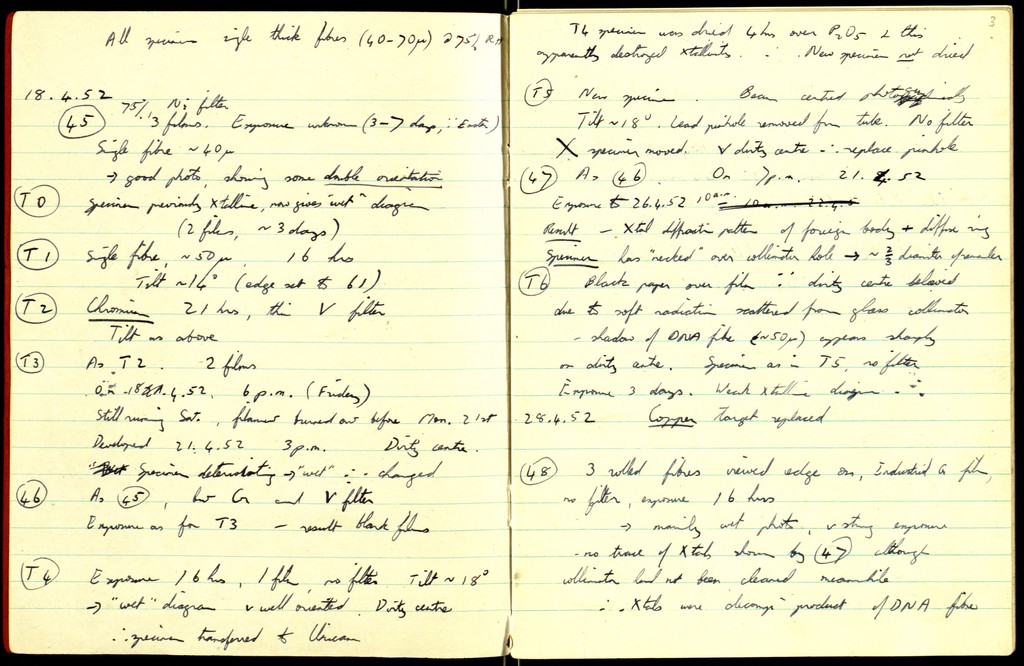 All specimens single thick fibres (40-70μ) @ 75% R.H
18.4.52
75%, Ni filter
(45) 3 films. Exposure unknown (3-7 days, ∵ Easter)
Single fibre ~40μ
→ good photo, showing some double orientation
(T0) Specimen previously Xtalline, now gives "wet" diagram
(2 films, ~3 days)
(T1) Single fibre, ~50μ, 16 hrs
Tilt ~14° (edge set to 61)
(T2) Chromium 21 hrs, thin V filter
Tilt as above
(T3) As T2. 2 films
On 18.4.52, 6 p.m. (Friday)
Still running Sat., filament burned out before Mon. 21st
Developed 21.4.52 3 p.m. Dirty centre.
Specimen deteriorating → "wet" ∴ changed
(46) As (45), but Cr and V filter
Exposure as for T3 - result blank films
(T4) Exposure 16 hrs, 1 film, no filter Tilt ~18°
→ "wet" diagram v well oriented. Dirty centre
∴ specimen transferred to Unicam
3
T4 specimen was dried 4 hrs over P2O5 & this
apparently destroyed Xtallinity ∴ New specimen not dried
(T5) New specimen. Beam centred photographically
Tilt ~18°. Lead pinhole removed from tube. No filter
X specimen moved. V dirty centre ∴ replace pinhole
(47) As (46). On 7 p.m. 21.4.52
Exposure to 26.4.52 10 a.m.
Result - Xtal diffraction pattern of foreign body + diffuse ring
Specimen has "necked" over collimator hole → ~2/3 diameter
(T6) Black paper over film ∵ dirty centre believed
due to soft radiation scattered from glass collimator
- shadow of DNA fibre (~50μ) appears sharply
on dirty centre. Specimen as in T5, no filter
Exposure 3 days. Weak Xtalline diagram
28.4.52 Copper target replaced
(48) 3 rolled fibres viewed edge on, Industrial G film,
no filter, exposure 16 hrs
→ mainly wet photo, v strong exposure
- no trace of Xtals shown by (47) although
collimator had not been cleaned meanwhile
∴ Xtals were decomp. product of DNA fibre